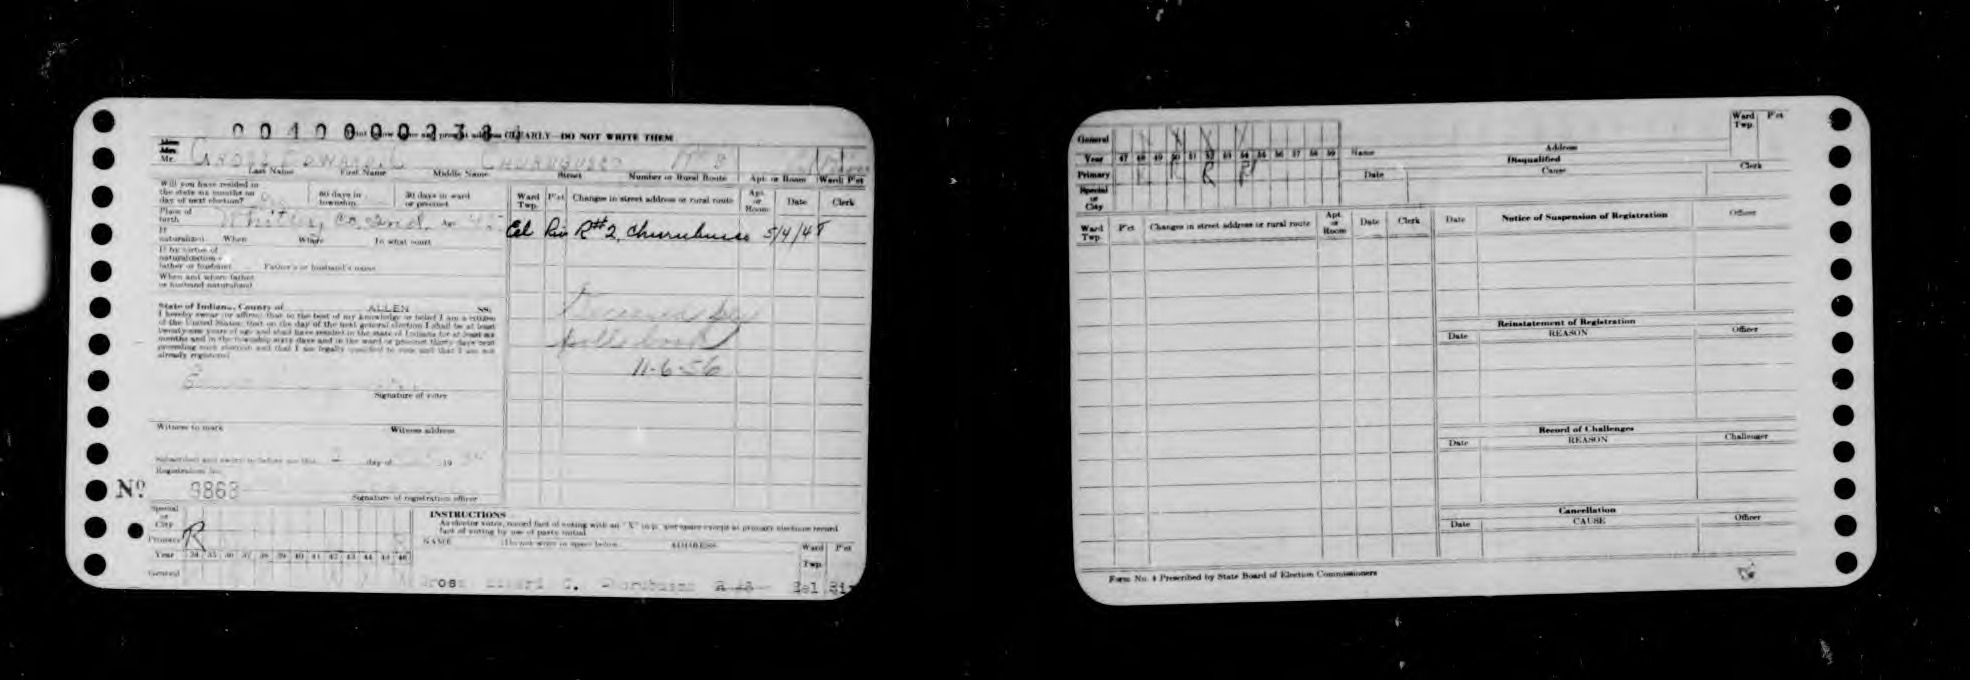 0010000278
Print your name and present address CLEARLY—DO NOT WRITE THEM
Miss
Mrs.
Mr. Gross Edward C Churubusco R# 3
Last Name First Name Middle Name Street Number or Rural Route Apt. or Room Ward P'ct
Will you have resided in
the state six months on
day of next election?
60 days in
township
30 days in ward
or precinct
Place of
birth Whitley Co, Ind. Age 45
If
naturalized When Where In what court
If by virtue of
naturalization of
father or husband Father's or husband's name
When and where father
or husband naturalized
State of Indiana, County of ALLEN SS.
I hereby swear (or affirm) that to the best of my knowledge or belief I am a citizen
of the United States; that on the day of the next general election I shall be at least
twenty-one years of age and shall have resided in the state of Indiana for at least six
months and in the township sixty days and in the ward or precinct thirty days next
preceding such election and that I am legally qualified to vote and that I am not
already registered
Signature of voter
Witness to mark Witness address
Subscribed and sworn to before me this 2 day of 19
Registration No.
No. 9863
Signature of registration officer
Special
or
City
Primary R
Year 34 35 36 37 38 39 40 41 42 43 44 45 46
General
Ward
Twp. P'ct Changes in street address or rural route Apt.
or
Room Date Clerk
Eel Riv R#2, Churubusco 5/4/48
polls book
11-6-56
INSTRUCTIONS
As elector votes, record fact of voting with an "X" in p. per space except at primary elections record
fact of voting by use of party initial
NAME (Do not write in space below) ADDRESS Ward
Twp. P'ct
Gross Edward C. Churubusco Eel Riv
General
Year 47 48 49 50 51 52 53 54 55 56 57 58 59
Primary R R R R
Special
or
City
Name Address
Ward
Twp. P'ct
Disqualified
Date Cause Clerk
Ward
Twp. P'ct Changes in street address or rural route Apt.
or
Room Date Clerk
Date Notice of Suspension of Registration Officer
Reinstatement of Registration
Date REASON Officer
Record of Challenges
Date REASON Challenger
Cancellation
Date CAUSE Officer
Form No. 4 Prescribed by State Board of Election Commissioners